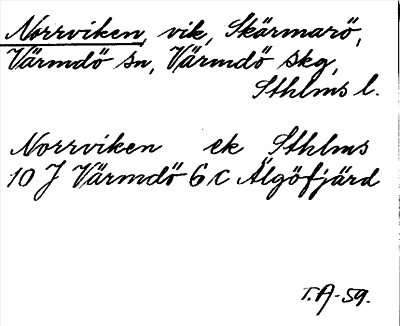 Norrviken, vik, Skärmarö,
Värmdö sn, Värmdö skg,
Sthlms l.
Norrviken ek Sthlms
10 J Värmdö 6 c Älgöfjärd
T.A-59.